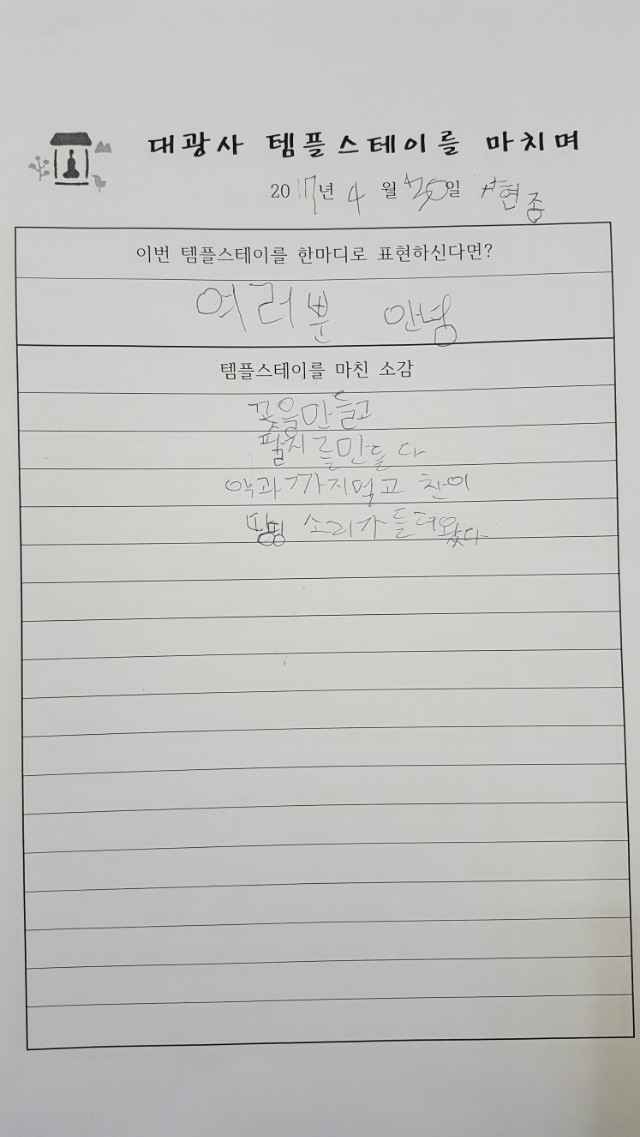 대광사 템플스테이를 마치며
2017년 4월 일 현종
이번 템플스테이를 한마디로 표현하신다면?
여러분 안녕
템플스테이를 마친 소감
꽃을만들고
팔찌를만들다
약과까지먹고
소리가들려왔다